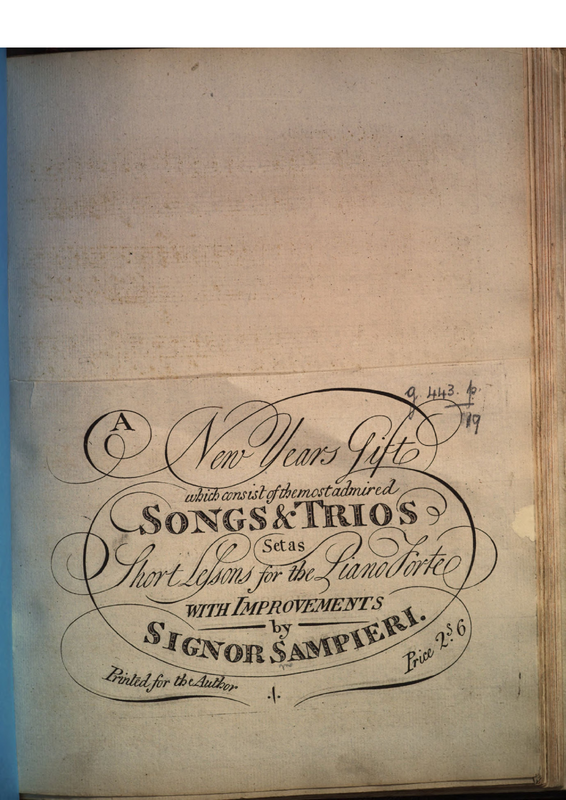 g. 443. p.
19
A
New Years Gift
which consist of the most admired
SONGS & TRIOS
Set as
Short Lessons for the Piano Forte
WITH IMPROVEMENTS
by
SIGNOR SAMPIERI.
Printed for the Author
.1.
Price 2s. 6